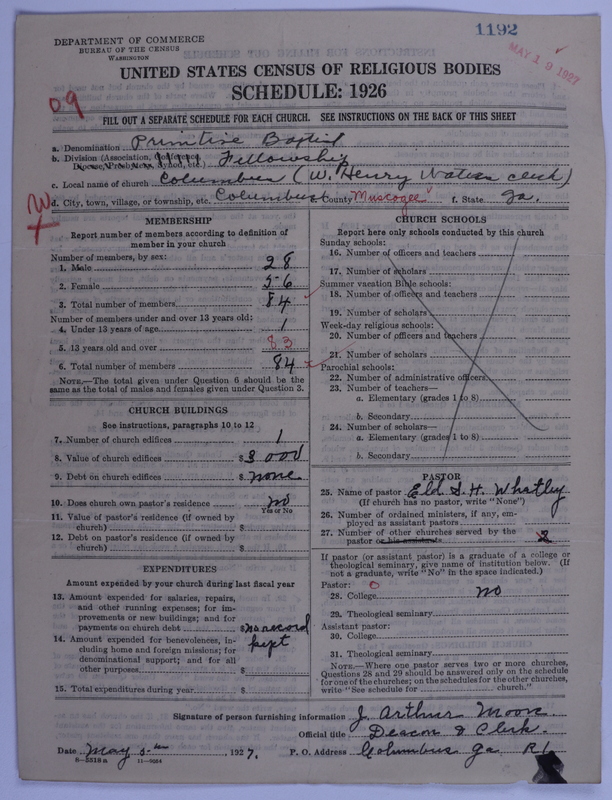 1192
MAY 19 1927
DEPARTMENT OF COMMERCE
BUREAU OF THE CENSUS
WASHINGTON
UNITED STATES CENSUS OF RELIGIOUS BODIES
SCHEDULE: 1926
09
FILL OUT A SEPARATE SCHEDULE FOR EACH CHURCH. SEE INSTRUCTIONS ON THE BACK OF THIS SHEET
a. Denomination Primitive Baptist
b. Division (Association, Conference, Fellowship
Diocese, Presbytery, Synod, etc.)
c. Local name of church Columbus (W. Henry Waters clerk)
d. City, town, village, or township, etc. Columbus County Muscogee f. State Ga.
MEMBERSHIP
Report number of members according to definition of
member in your church
Number of members, by sex:
1. Male 28
2. Female 56
3. Total number of members 84
Number of members under and over 13 years old:
4. Under 13 years of age 1
5. 13 years old and over 83
6. Total number of members 84
NOTE.—The total given under Question 6 should be the
same as the total of males and females given under Question 3.
CHURCH BUILDINGS
See instructions, paragraphs 10 to 12
7. Number of church edifices 1
8. Value of church edifices $3000
9. Debt on church edifices $none
10. Does church own pastor's residence no
Yes or No
11. Value of pastor's residence (if owned by
church) $
12. Debt on pastor's residence (if owned by
church) $
EXPENDITURES
Amount expended by your church during last fiscal year
13. Amount expended for salaries, repairs,
and other running expenses; for im-
provements or new buildings; and for
payments on church debt $no record
14. Amount expended for benevolences, in- kept
cluding home and foreign missions; for
denominational support; and for all
other purposes $
15. Total expenditures during year $
CHURCH SCHOOLS
Report here only schools conducted by this church
Sunday schools:
16. Number of officers and teachers
17. Number of scholars
Summer vacation Bible schools:
18. Number of officers and teachers
19. Number of scholars
Week-day religious schools:
20. Number of officers and teachers
21. Number of scholars
Parochial schools:
22. Number of administrative officers
23. Number of teachers—
a. Elementary (grades 1 to 8)
b. Secondary
24. Number of scholars—
a. Elementary (grades 1 to 8)
b. Secondary
PASTOR
25. Name of pastor Eld. S. H. Whatley
(If church has no pastor, write "None")
26. Number of ordained ministers, if any, em-
ployed as assistant pastors
27. Number of other churches served by the
pastor or his assistants
If pastor (or assistant pastor) is a graduate of a college or
theological seminary, give name of institution below. (If
not a graduate, write "No" in the space indicated.)
Pastor: 0
28. College no
29. Theological seminary
Assistant pastor:
30. College
31. Theological seminary
NOTE.—Where one pastor serves two or more churches,
Questions 28 and 29 should be answered only on the schedule
for one of the churches; on the schedules for the other churches,
write "See schedule for church."
Signature of person furnishing information J. Arthur Moore
Official title Deacon & Clerk.
Date May 5th 1927. P. O. Address Columbus Ga R1
8—5518a 11—9264